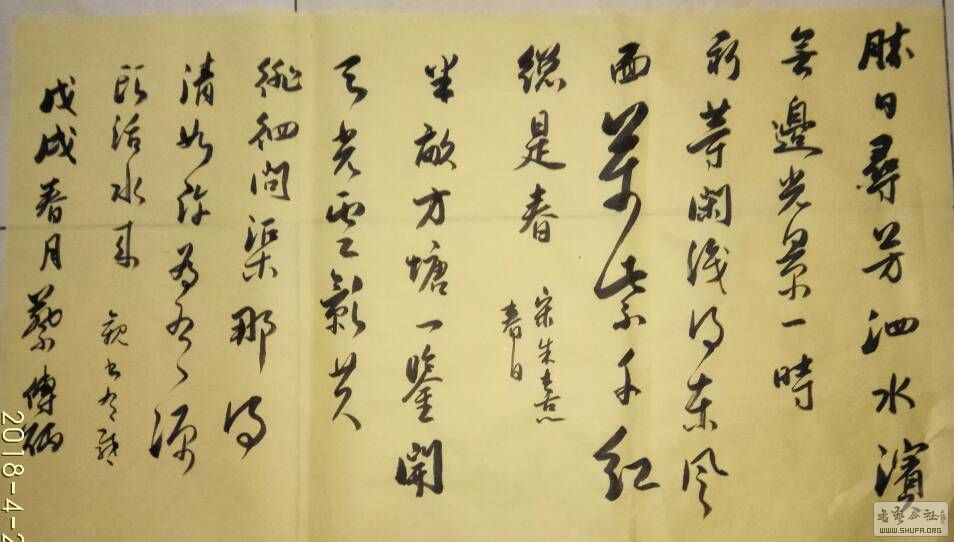 勝日尋芳泗水濱
無邊光景一時
新等閑識得東風
面萬紫千紅
總是春
宋朱熹
春日
半畝方塘一鑒開
天光雲影共
徘徊問渠那得
清如許為有源
頭活水來
觀書有感
戊戌春月蔡傳
2018-4-2
WWW.SHUFA.ORG